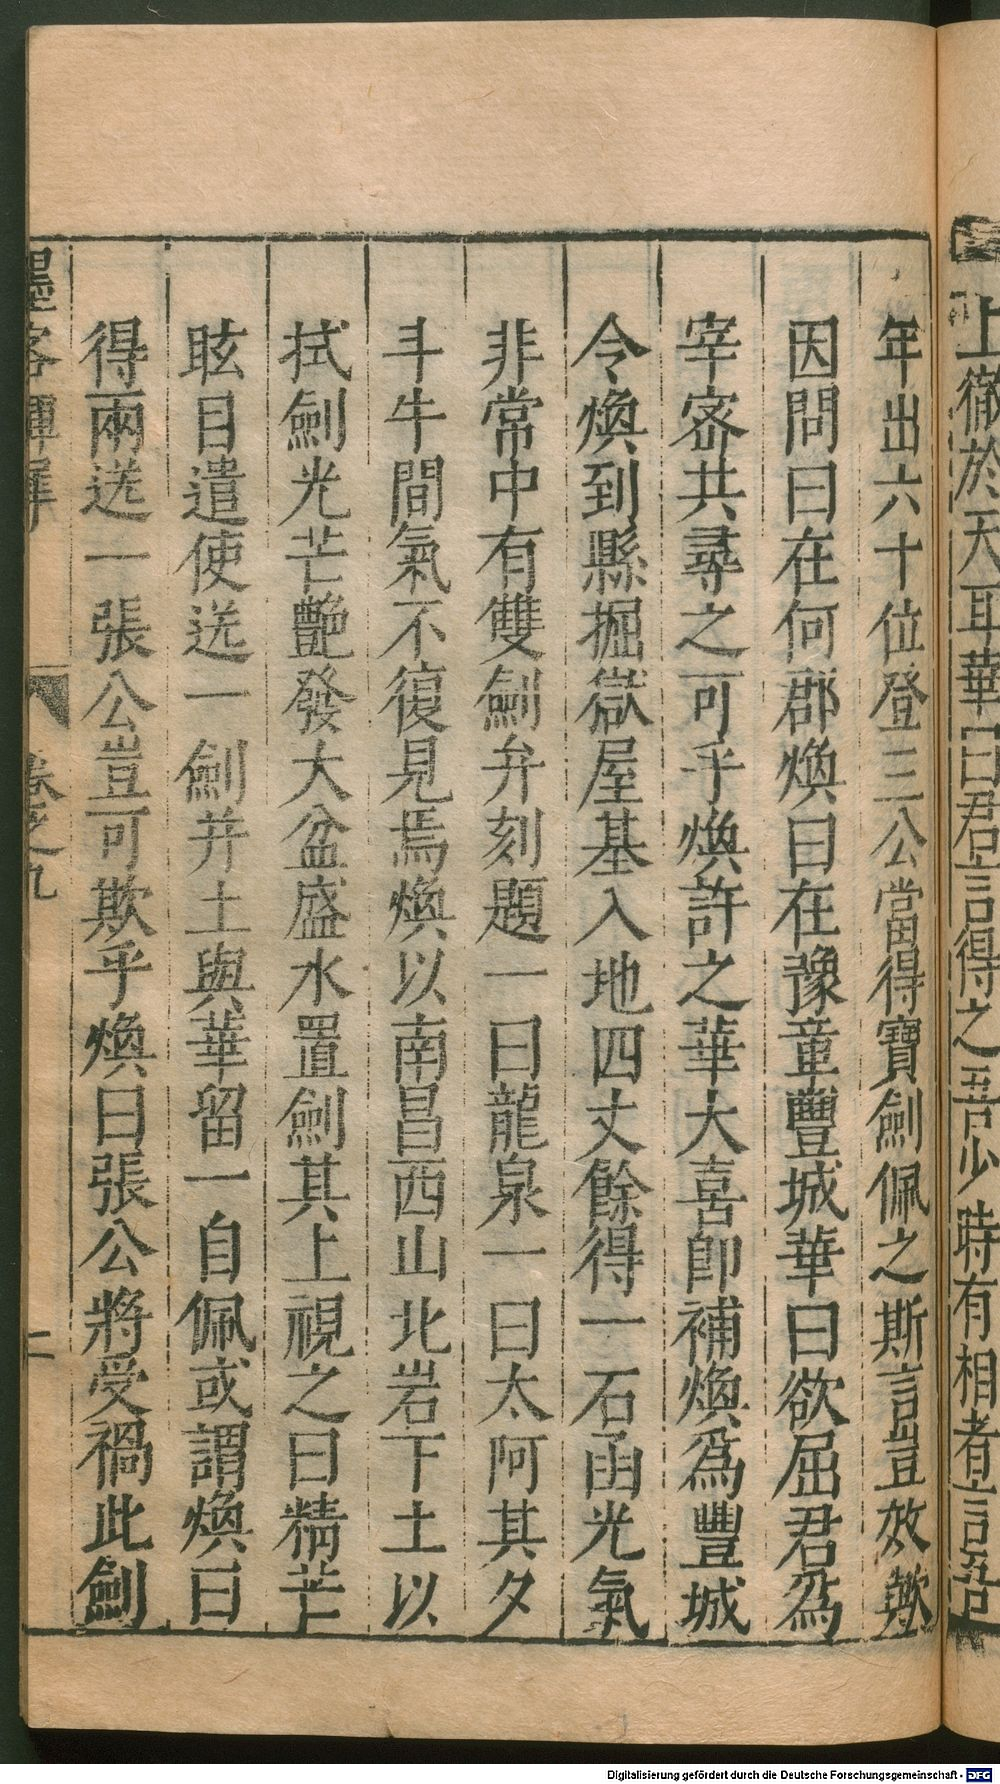 上徹於天耳華曰君言得之吾少時有相者言吾
年出六十位登三公當得寶劍佩之斯言豈效歟
因問曰在何郡煥曰在豫章豐城華曰欲屈君為
宰密共尋之可乎煥許之華大喜即補煥為豐城
令煥到縣掘獄屋基入地四丈餘得一石函光氣
非常中有雙劍并刻題一曰龍泉一曰太阿其夕
斗牛間氣不復見焉煥以南昌西山北岩下土以
拭劍光芒艷發大盆盛水置劍其上視之曰精芒
眩目遣使送一劍并土與華留一自佩或謂煥曰
得兩送一張公豈可欺乎煥曰張公將受禍此劍
墨客揮犀
卷之九
二
Digitalisierung gefördert durch die Deutsche Forschungsgemeinschaft - DFG